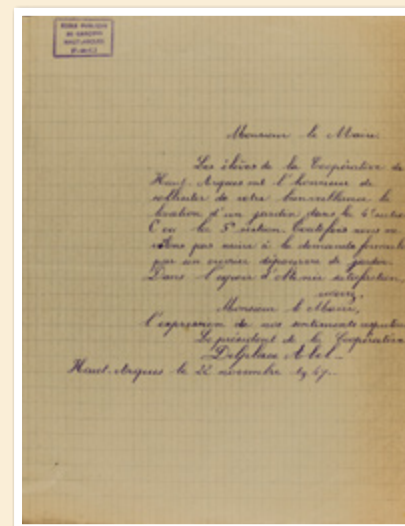 ECOLE PUBLIQUE
DE GARÇONS
HAUT-ARQUES
(P.-de-C.)
Monsieur le Maire
Les élèves de la Coopérative de
Haut-Arques ont l'honneur de
solliciter de votre bienveillance la
location d'un jardin dans la 4e section
C ou la 5e section. Toutefois nous ne
pas nuire à la demande formulée
par un ouvrier dépourvu de jardin.
Dans l'espoir d'obtenir satisfaction,
Monsieur le Maire,
l'expression de nos sentiments respectueux
Le président de la Coopérative
Delplace Abel
Haut-Arques le 22 novembre 1947